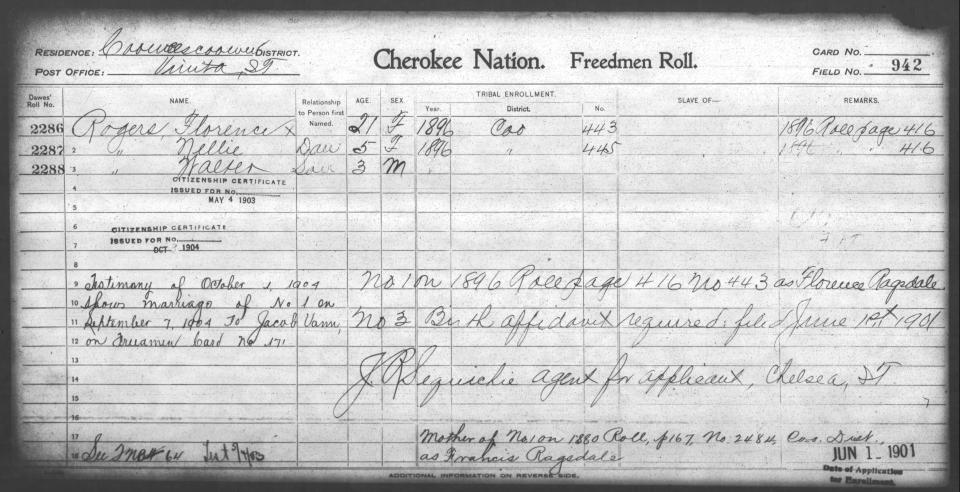 RESIDENCE: Coowescoowee DISTRICT.
POST OFFICE: Vinita, I.T.
Cherokee Nation. Freedmen Roll.
CARD NO.
FIELD NO. 942
Dawes' Roll No.
NAME.
Relationship to Person first Named.
AGE.
SEX.
TRIBAL ENROLLMENT.
Year.
District.
No.
SLAVE OF—
REMARKS.
2286 Rogers, Florence x 21 F 1896 Coo 443 1896 Roll page 416
2287 2 " Nellie Dau 5 F 1896 " 445 1896 " " 416
2288 3 " Walter Son 3 M
4 CITIZENSHIP CERTIFICATE
ISSUED FOR NO.
5 MAY 4 1903
6 CITIZENSHIP CERTIFICATE
ISSUED FOR NO.
7 OCT 1904
8
9 Testimony of October 1, 1904 No 1 on 1896 Roll page 416 No 443 as Florence Ragsdale
10 shows marriage of No 1 on
11 September 7, 1904 to Jacob Vann, No 3 Birth affidavit required: filed June 1st 1901
12 on Freedmen Card No 171
13
14 J. R. Sequichie agent for applicant, Chelsea, I.T.
15
16
17 Mother of No 1 on 1880 Roll, p167, No. 2484, Coo. Dist.,
18 See 64 Test 9/4/03 as Francis Ragsdale
JUN 1 - 1901
Date of Application
for Enrollment.
ADDITIONAL INFORMATION ON REVERSE SIDE.